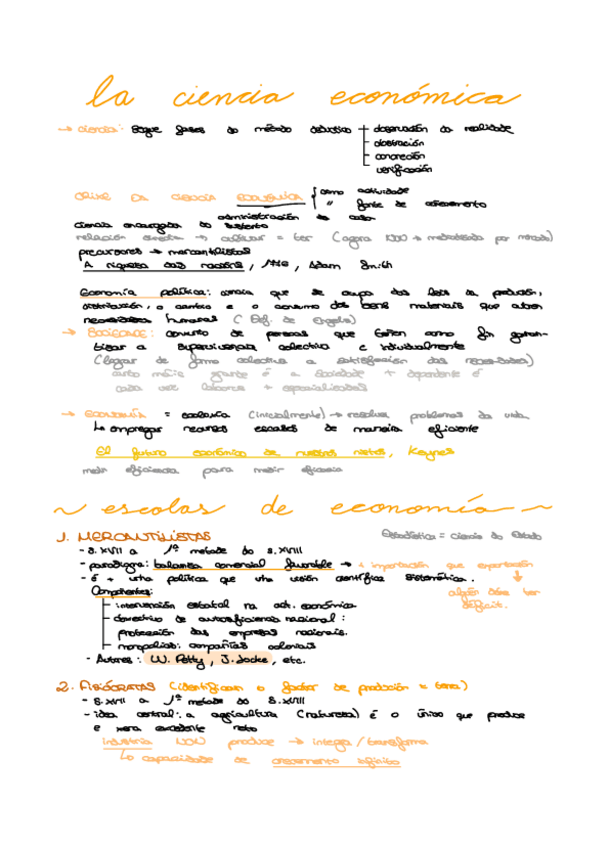 la ciencia económica
→ ciencia: segue fases do método deductivo observación da realidade
abstracción
concreción
verificación
ciencia económica como actividade
" fonte de crecemento
administración casa
ciencia encargada do sustento
relación directa → cultivar = ter (agora NON → mediatizado por mercado)
precursores → mercantilistas
A riqueza das nacións, 1776, Adam Smith
Economía política: ciencia que se ocupa das leis da produción,
distribución, o cambio e o consumo dos bens materiais que cubren
necesidades humanas (Def. de Engels)
→ SOCIEDADE: conxunto de persoas que teñen como fin garan-
tizar a supervivencia colectiva e individualmente
(lograr de forma colectiva a satisfacción das necesidades)
canto máis grande é a sociedade + dependente é
cada vez + especialidades
→ ECONOMÍA = (inicialmente) → resolver problemas da vida
↳ empregar recursos escasos de maneira eficiente
El futuro económico de nuestros nietos, Keynes
medir eficacia para medir eficiencia
~ escolas de economía ~
1. MERCANTILISTAS Estadística = ciencia do Estado
- s. XVII a 1ª metade do s. XVIII
- paradigma: balanza comercial favorable → + importación que exportación
- é + unha política que unha visión científica sistemática. ↓
Compoñentes: alguén debe ter
- intervención estatal na act. económica déficit.
- de autosuficiencia nacional:
protección das empresas nacionais.
- monopolios: compañías coloniais
- Autores: W. Petty, J. Locke, etc.
2. FISIÓCRATAS (identifican o factor de produción = terra)
- s. XVII a 1ª metade do s. XVIII
- idea central: a agricultura (natureza) é o único que produce
e xera excedente neto
industria NON produce → integra / transforma
↳ capacidade de crecemento infinito